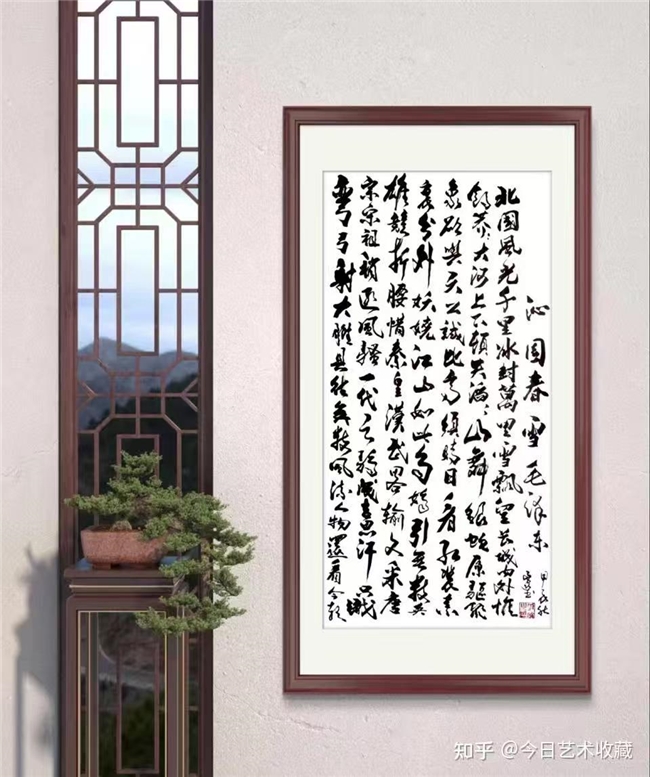 沁园春雪毛泽东
北国風光千里冰封萬里雪飘望长城内外惟
馀莽〻大河上下顿失滔〻山舞银蛇原驱蜡
象欲與天公試比高須晴日看红装素
裹分外妖娆江山如此多娇引無数英
雄競折腰惜秦皇漢武略输文采唐
宗宋祖稍逊風骚一代天骄成吉思汗只識
弯弓射大雕具往矣数風流人物還看今朝
甲辰秋
知乎 @今日艺术收藏